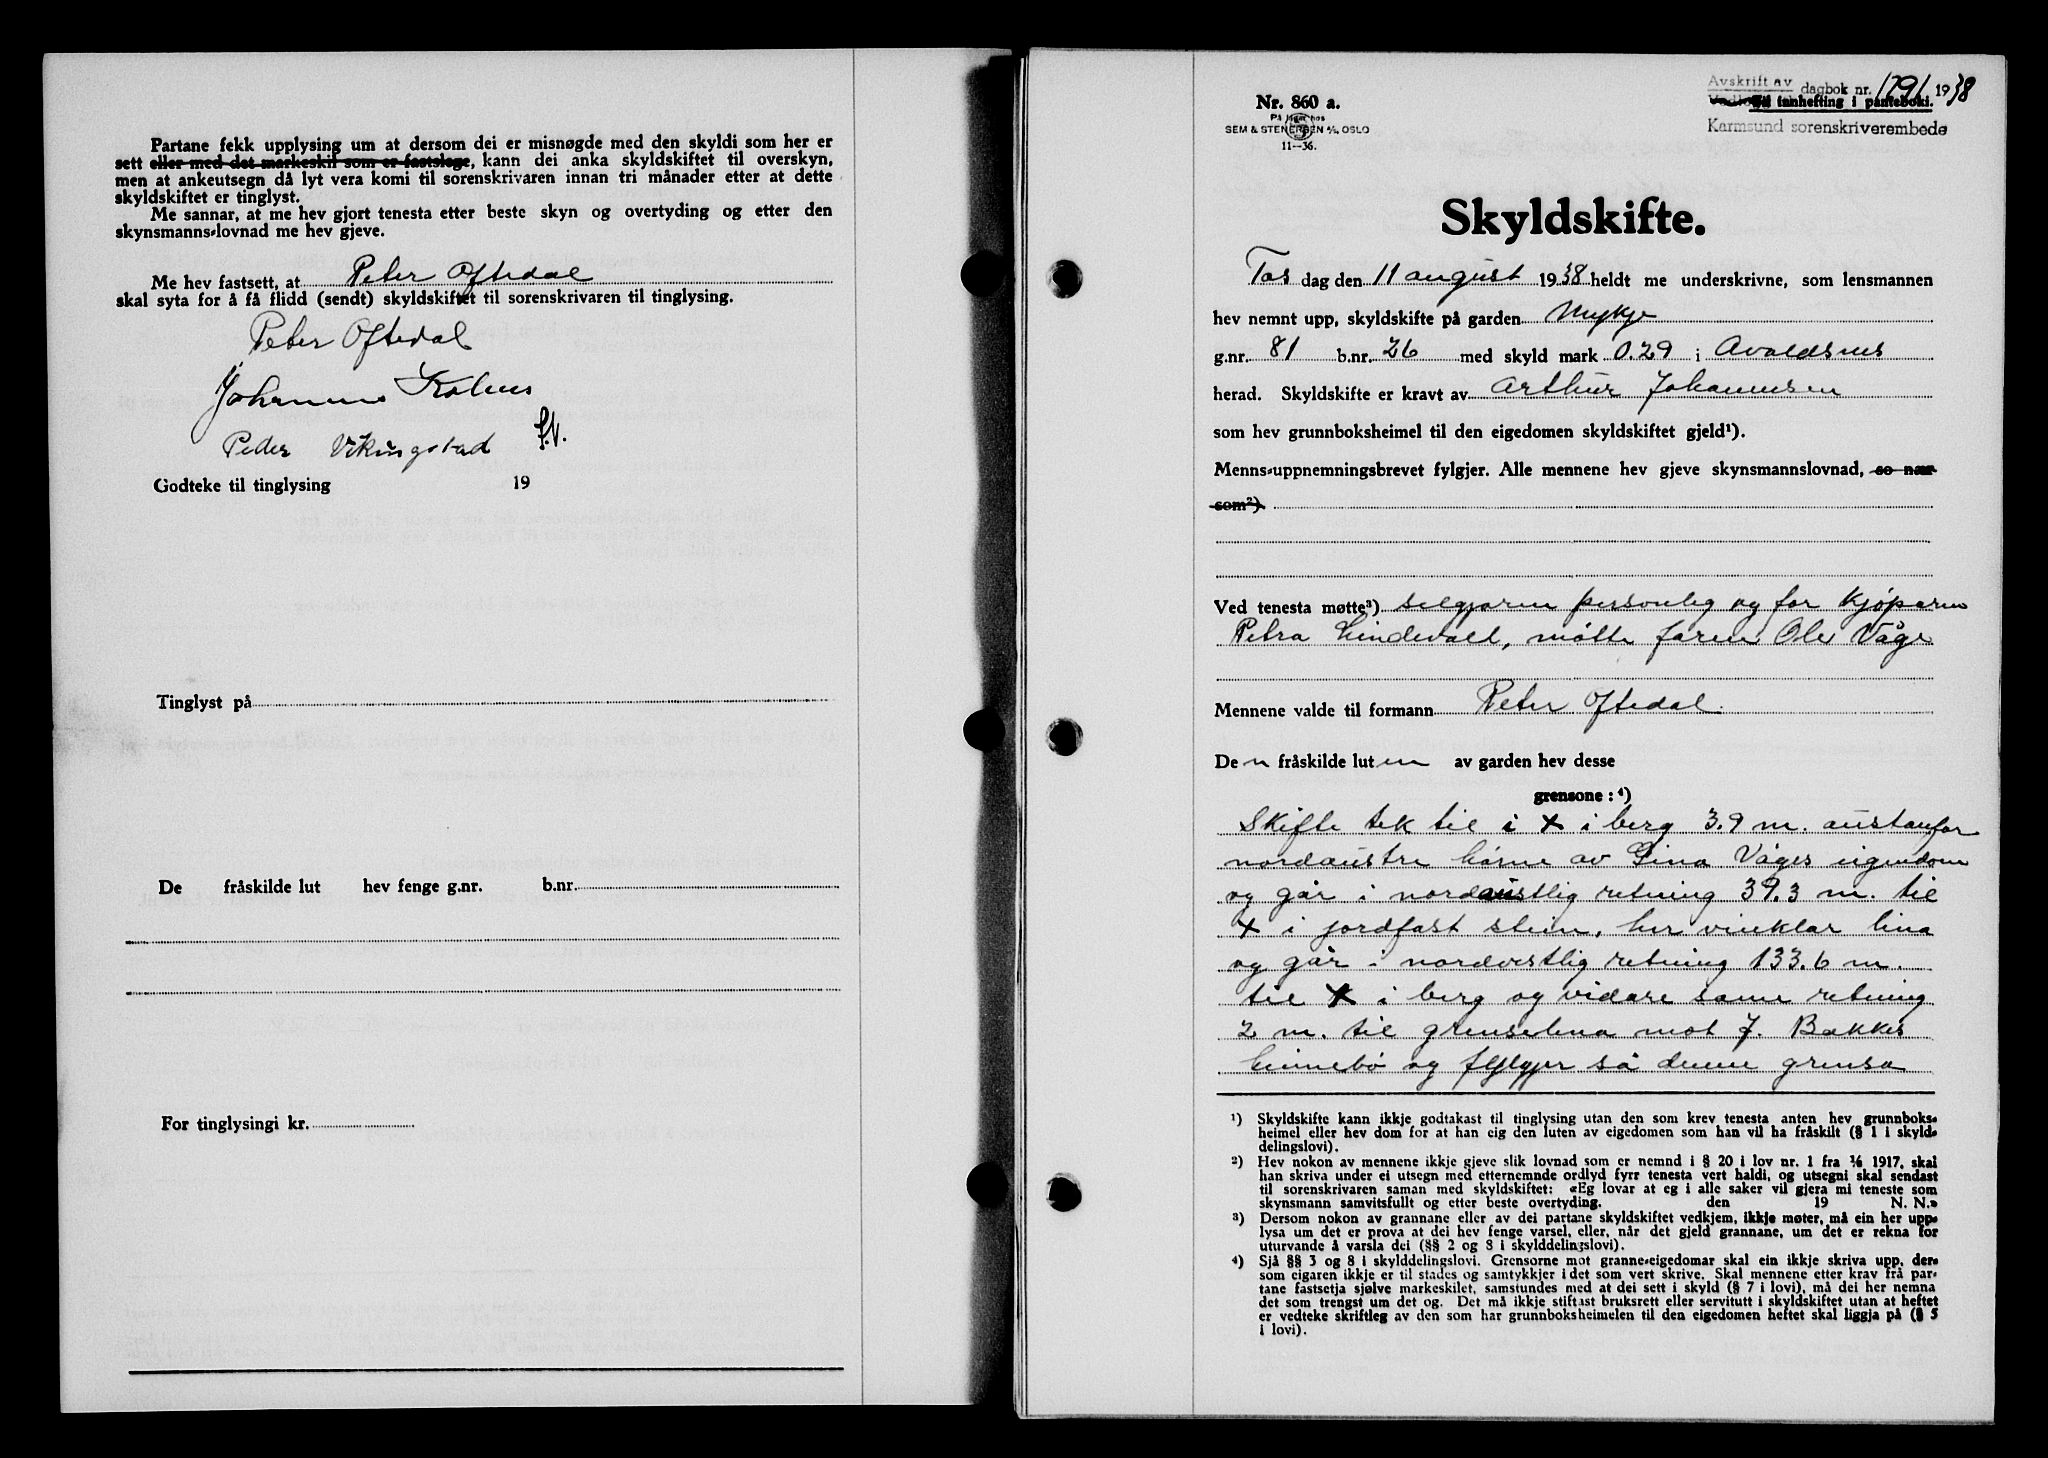 Partane fekk upplysing um at dersom dei er misnøgde med den skyldi som her er
sett eller med det markeskil som er fastslege, kann dei anka skyldskiftet til overskyn,
men at ankeutsegn då lyt vera komi til sorenskrivaren innan tri månader etter at dette
skyldskiftet er tinglyst.
Me sannar, at me hev gjort tenesta etter beste skyn og overtyding og etter den
skynsmanns-lovnad me hev gjeve.
Me hev fastsett, at Peter Oftedal
skal syta for å få flidd (sendt) skyldskiftet til sorenskrivaren til tinglysing.
Peter Oftedal
Johannes Kolnes
Peder Vikingstad
Godteke til tinglysing 19
Tinglyst på
De fråskilde lut hev fenge g.nr. b.nr.
For tinglysingi kr.
Avskrift av dagbok nr. 1791 1938
Til innhefting i panteboki.
Karmsund sorenskriverembede
Nr. 860 a.
På lager hos
SEM & STENERSEN A/S, OSLO
11-36.
Skyldskifte.
Tos dag den 11 august 1938 heldt me underskrivne, som lensmannen
hev nemnt upp, skyldskifte på garden Mykje
g.nr. 81 b.nr. 26 med skyld mark 0.29 i Avaldsnes
herad. Skyldskifte er kravt av Arthur Johannesen
som hev grunnboksheimel til den eigedomen skyldskiftet gjeld¹).
Menns-uppnemningsbrevet fylgjer. Alle mennene hev gjeve skynsmannslovnad, so nær
som²)
Ved tenesta møtte³) seljaren personleg og for kjøparen
Petra Lindevall, møtte faren Ole Våge
Mennene valde til formann Peter Oftedal.
Den fråskilde luten av garden hev desse
grensone : ⁴)
Skifte tek til i X i berg 3.9 m. austanfor
nordaustre hørne av Gina Våges eigendom
og går i nordaustlig retning 39.3 m. til
X i jordfast stein, her vinklar lina
og går i nordvestlig retning 133.6 m.
til X i berg og vidare same retning
2 m. til grenselina mot J. Bakkes
innebø og fylgjer så denne grensa
¹) Skyldskifte kann ikkje godtakast til tinglysing utan den som krev tenesta anten hev grunnboks-
heimel eller hev dom for at han eig den luten av eigedomen som han vil ha fråskilt (§ 1 i skyld-
delingslovi).
²) Hev nokon av mennene ikkje gjeve slik lovnad som er nemnd i § 20 i lov nr. 1 fra 1/6 1917, skal
han skriva under ei utsegn med etternemnde ordlyd fyrr tenesta vert haldi, og utsegni skal sendast
til sorenskrivaren saman med skyldskiftet: «Eg lovar at eg i alle saker vil gjera mi teneste som
skynsmann samvitsfullt og etter beste overtyding. den 19 N. N.»
³) Dersom nokon av grannane eller av dei partane skyldskiftet vedkjem, ikkje møter, må ein her upp-
lysa um det er prova at dei hev fenge varsel, eller, når det gjeld grannane, um det er rekna for
uturvande å varsla dei (§§ 2 og 8 i skylddelingslovi).
⁴) Sjå §§ 3 og 8 i skylddelingslovi. Grensorne mot granne-eigedomar skal ein ikkje skriva upp, der-
som eigaren ikkje er til stades og samtykkjer i det som vert skrive. Skal mennene etter krav frå par-
tane fastsetja sjølve markeskilet, samstundes med at dei sett i skyld (§ 7 i lovi), må dei her nemna
det som trengst um det og. Det må ikkje stiftast bruksrett eller servitutt i skyldskiftet utan at heftet
er vedteke skriftleg av den som har grunnboksheimelen til den eigedomen heftet skal liggja på (§ 5
i lovi).